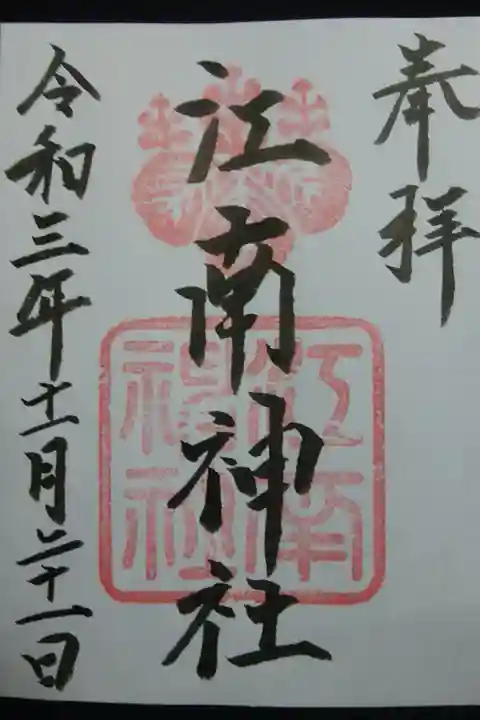 奉拝
江南神社
令和三年十一月二十一日
江南
神社